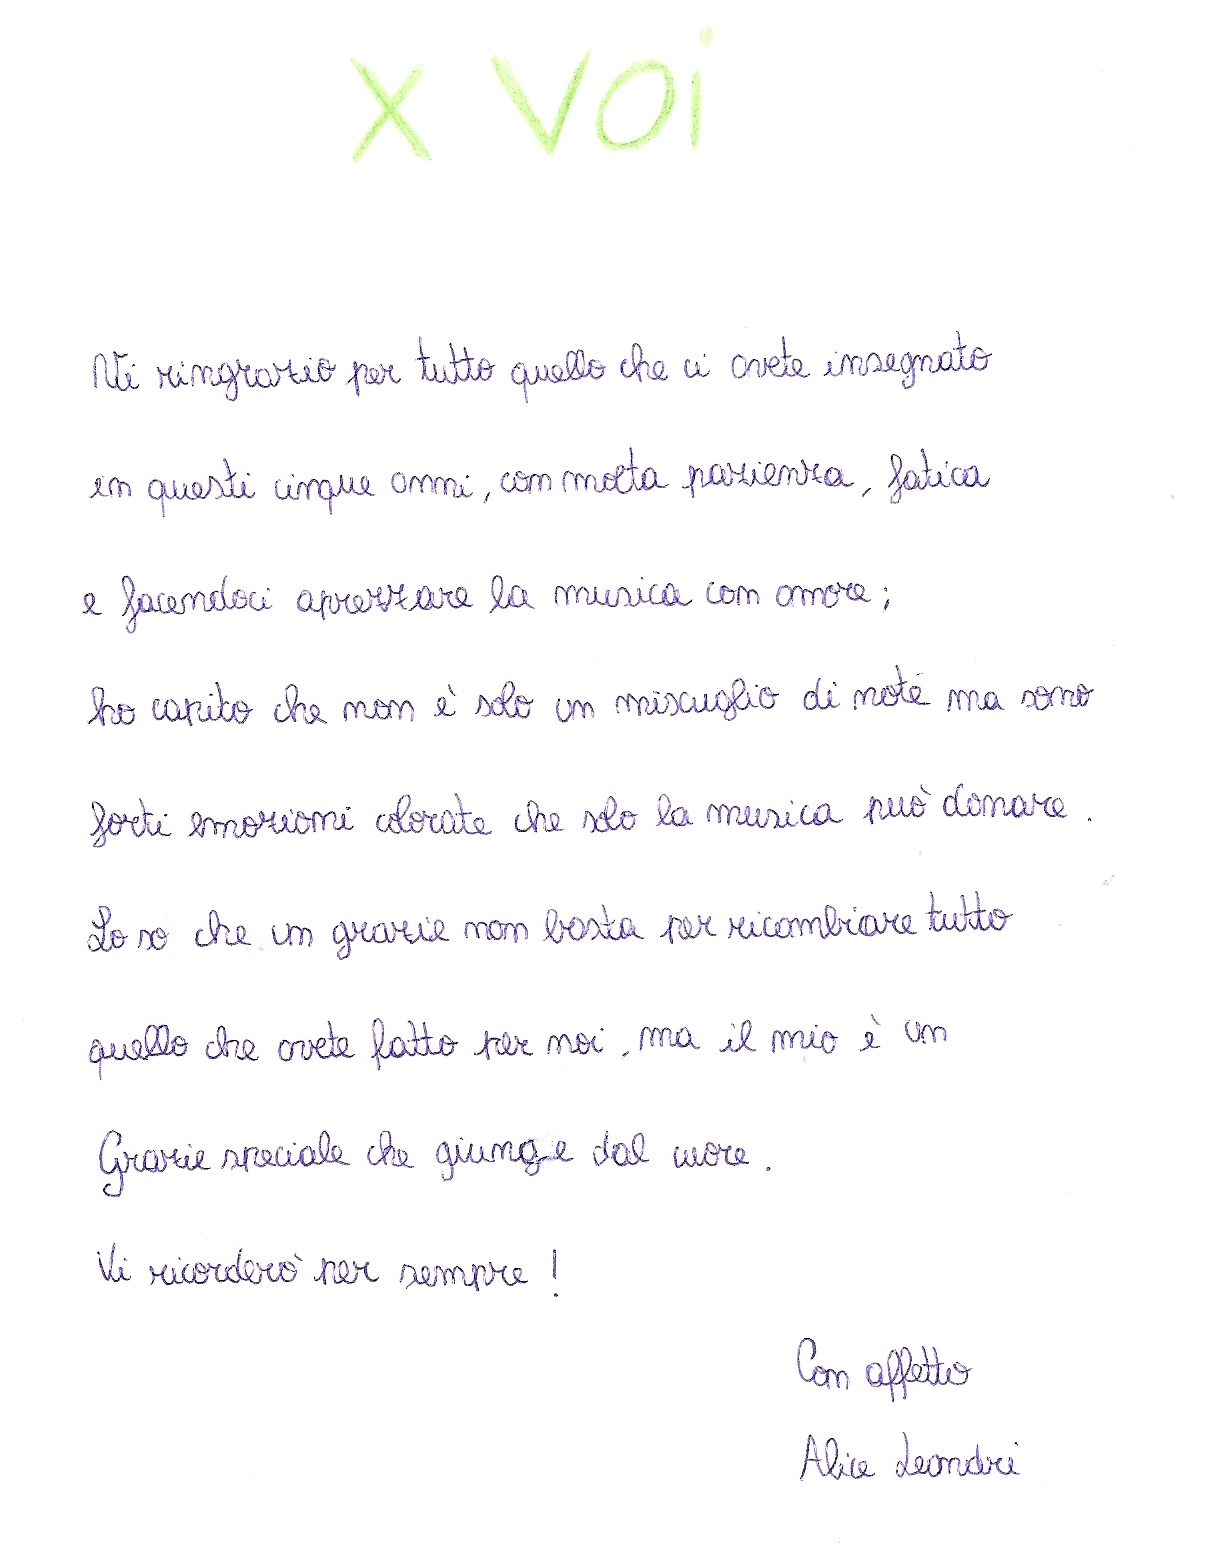 X VOi
Vi ringrazio per tutto quello che ci avete insegnato
in questi cinque anni, con molta pazienza, fatica
e facendoci aprezzare la musica con amore;
ho capito che non è solo un miscuglio di note ma sono
forti emozioni colorate che solo la musica può donare.
Lo so che un grazie non basta per ricambiare tutto
quello che avete fatto per noi, ma il mio è un
Grazie speciale che giunge dal cuore.
Vi ricorderò per sempre!
Con affetto
Alice Leandri